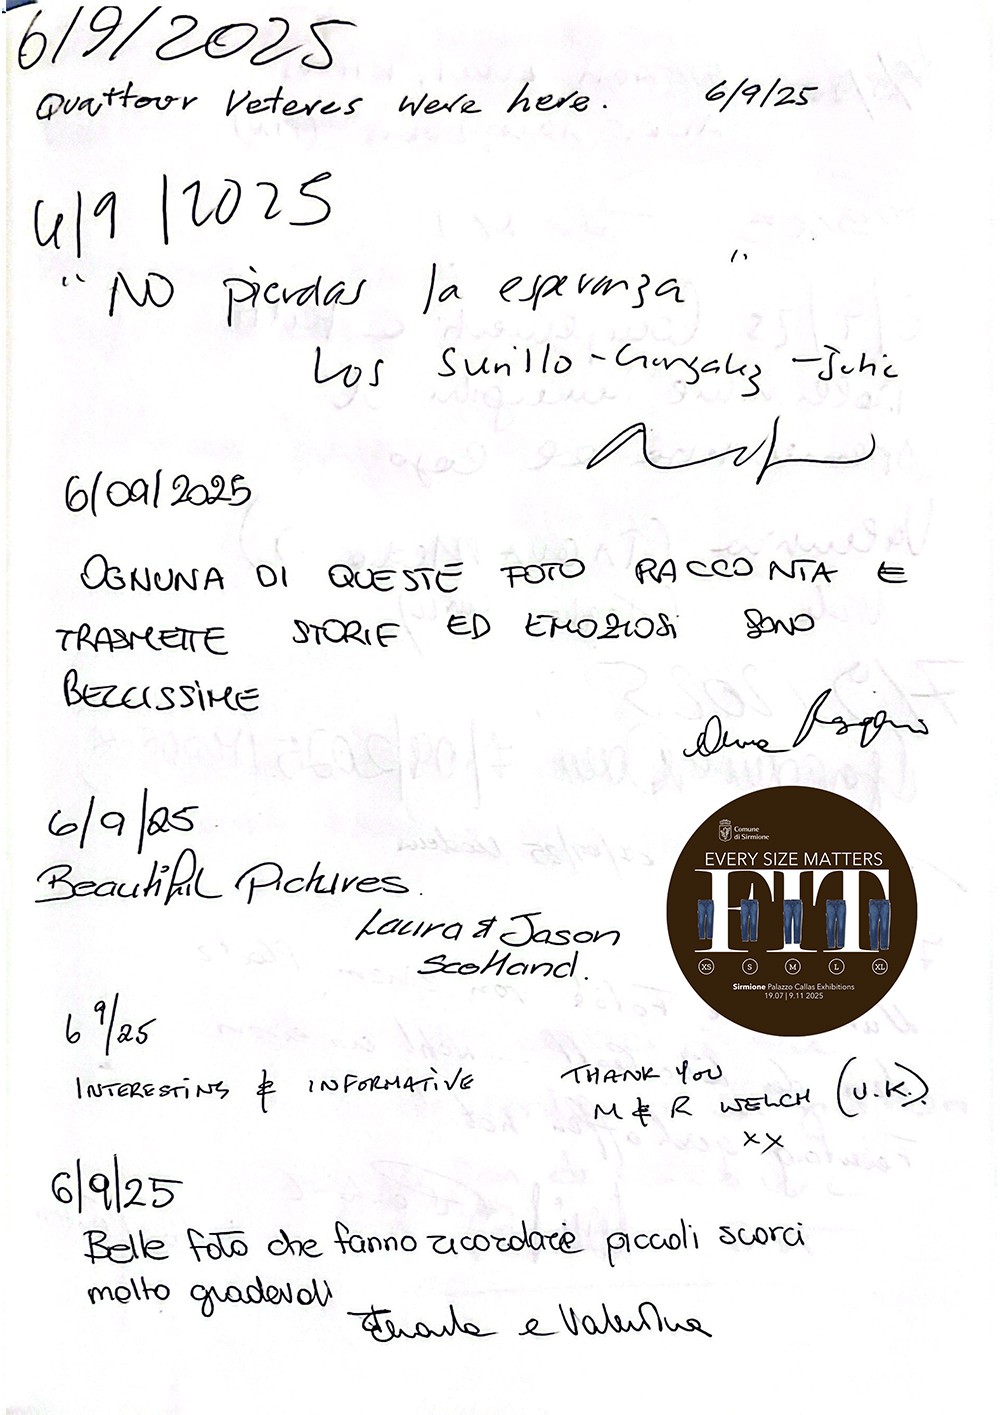 6/9/2025
Quattour Veteres were here. 6/9/25
6/9/2025
"NO pierdas la esperanza"
Los Surillo-Gonzalez-
6/09/2025
OGNUNA DI QUESTE FOTO RACCONTA E
TRASMETTE STORIE ED EMOZIOSI SONO
BELLISSIME
6/9/25
Beautiful Pictures.
Laura & Jason
Scotland.
Comune
di Sirmione
EVERY SIZE MATTERS
FIT
XS S M L XL
Sirmione Palazzo Callas Exhibitions
19.07 | 9.11 2025
6 9/25
INTERESTING & INFORMATIVE
THANK YOU
M & R WELCH (U.K).
xx
6/9/25
Belle foto che fanno ricordare piccoli scorci
molto gradevoli
e Valentina